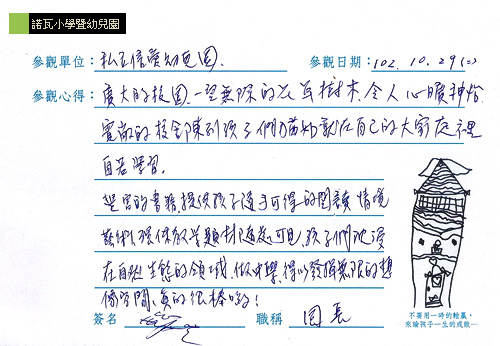 諾瓦小學暨幼兒園
參觀單位：私立信愛幼兒園 參觀日期：102.10.29(二)
參觀心得：廣大的校園,一望無際的花草樹木,令人心曠神怡
寬敞的校舍陳列孩子們猶如就在自己的大家庭裡
自若學習.
豐富的書籍,提供孩子隨手可得的閱讀情境
藝術環保教學題材隨處可見,孩子們沈浸
在自然生態的領域,做中學,得以發揮無限的想
像空間,真的很棒喲!
簽名 職稱 園長
不要用一時的輸贏,
來論孩子一生的成敗